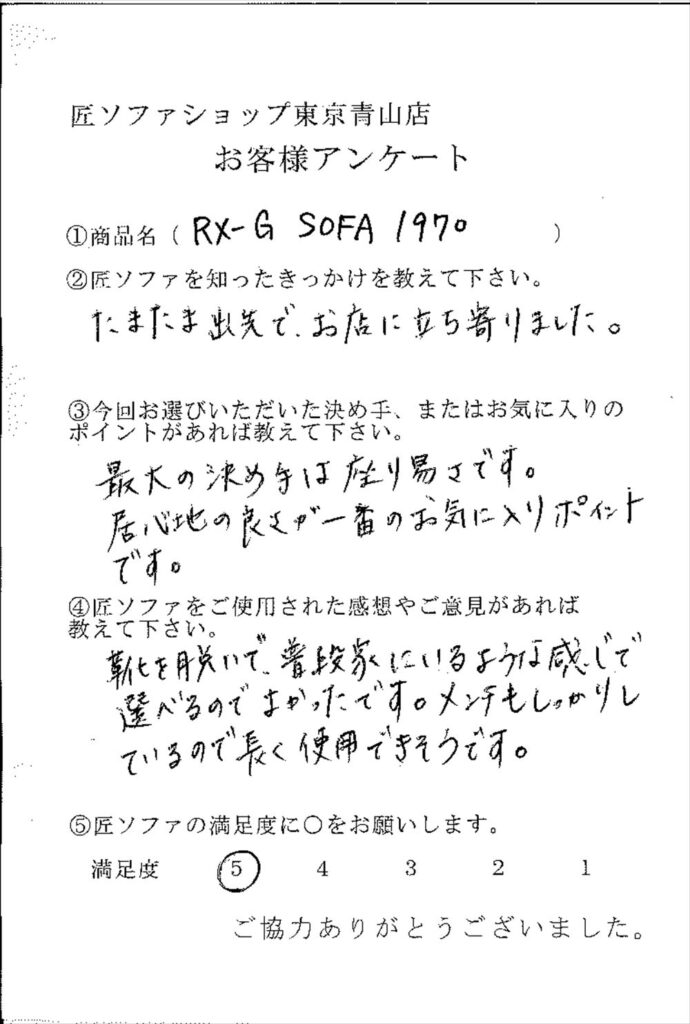 匠ソファショップ東京青山店
お客様アンケート
①商品名（ RX-G SOFA 1970 ）
②匠ソファを知ったきっかけを教えて下さい。
たまたま出先で、お店に立ち寄りました。
③今回お選びいただいた決め手、またはお気に入りの
ポイントがあれば教えて下さい。
最大の決め手は座り易さです。
居心地の良さが一番のお気に入りポイント
です。
④匠ソファをご使用された感想やご意見があれば
教えて下さい。
靴を脱いで、普段家にいるような感じで
選べるのでよかったです。メンテもしっかりし
ているので長く使用できそうです。
⑤匠ソファの満足度に〇をお願いします。
満足度 5 4 3 2 1
ご協力ありがとうございました。